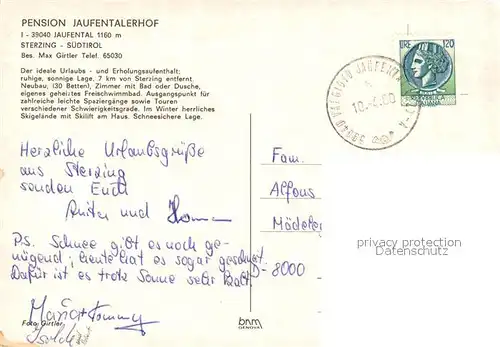 PENSION JAUFENTALERHOF
I - 39040 JAUFENTAL 1160 m
STERZING - SÜDTIROL
Bes. Max Girtler Telef. 65030
Der ideale Urlaubs - und Erholungsaufenthalt:
ruhige, sonnige Lage, 7 km von Sterzing entfernt.
Neubau, (30 Betten), Zimmer mit Bad oder Dusche,
eigenes geheiztes Freischwimmbad. Ausgangspunkt für
zahlreiche leichte Spaziergänge sowie Touren
verschiedener Schwierigkeitsgrade. Im Winter herrliches
Skigelände mit Skilift am Haus. Schneesichere Lage.
LIRE 120
10.4.80
Herzliche Urlaubsgrüße
aus Sterzing
senden Euch
Anita und
P.S. Schnee gibt es noch ge-
nügend, heute hat es sogar geschneit.
Dafür ist es trotz Sonne sehr kalt.
Maria + Tommy
Isolde
Foto Girtler
bnm
GENOVA
Fam.
Alfons
D- 8000
privacy protection
Datenschutz